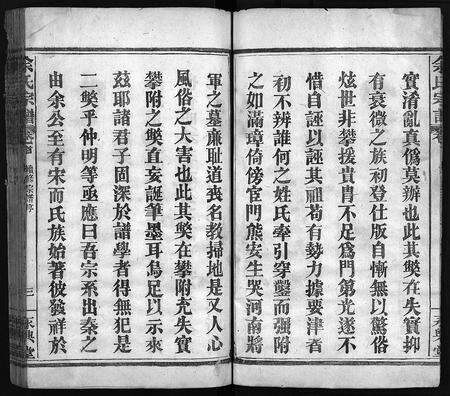 余氏宗譜
實淆亂真偽莫辦也此其獘在失實抑
有衰微之族初登仕版自慚無以驚俗
炫世非攀援貴冑不足為門第光遂不
惜自誣以誣其祖茍有勢力據要津者
初不辨誰何之姓氏牽引穿鑿而強附
之如滿璋倚傍宦門熊安生哭河南將
軍之墓廉耻道喪名教掃地是又人心
風俗之大害也此其獘在攀附充失實
攀附之獘直妄誕筆墨耳烏足以示來
茲耶諸君子固深於譜學者得無犯是
二獘乎仲明等亟應曰吾宗系出秦之
由余公至有宋而氏族始著彼發祥於
余氏宗譜
卷首
三
永興堂